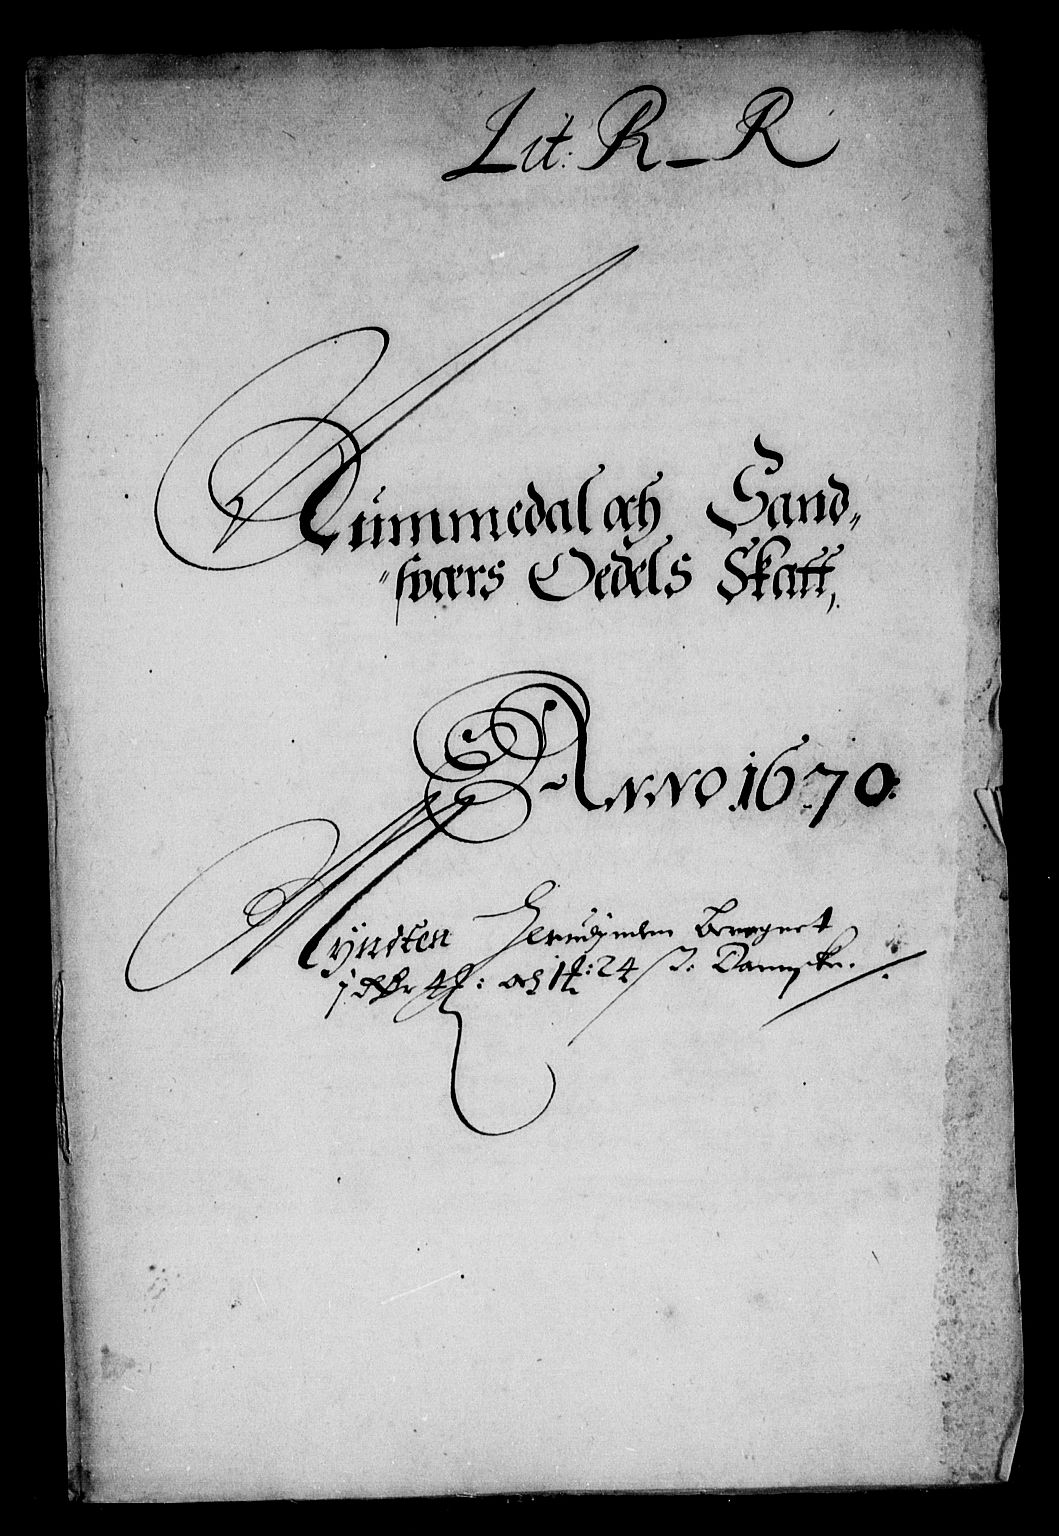 Lit: R_R
Nummedal och Sand„
„sværs Oedels Skatt,
Anno 1670.
Myndten Herudjnden Beregnet
j dlr 4 och 24 s: Danske.